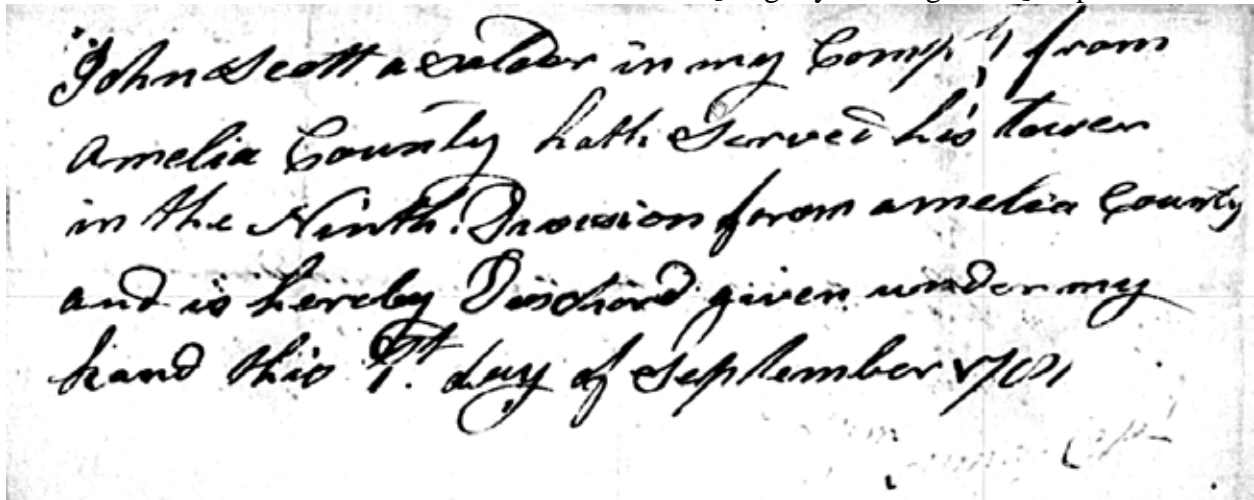 John Scott a Soldier in my Comp.y from
Amelia County hath Served his tower
in the Ninth Division from amelia County
and is hereby Dischard given under my
hand this 1st day of September 1781
Capt